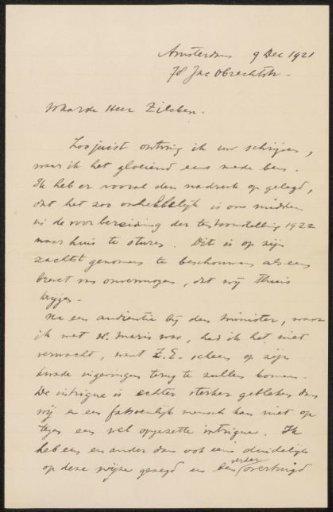 Amsterdam 9 Dec 1921
78 Jac Obrechtstr.
Waarde Heer Zilcken.
Zoo juist ontving ik uw schrijven,
waar ik het gloeiend eens mede ben.
Ik heb er vooral den nadruk op gelegd,
dat het zoo onhebbelijk is ons midden
in de voorbereiding der tentoonstelling 1922
naar huis te sturen. Dit is op zijn
zachtst genomen te beschouwen als een
brevet van onvermogen, dat wij thuis
krijgen.
Na een audiëntie bij den minister, waar
ik met W. Maris was, had ik het niet
verwacht, want Z.E. scheen op zijn
kwade ingevingen terug te zullen komen.
De intrigue is echter sterker gebleken dan
wij en een fatsoenlijk mensch kan niet op
tegen een wel opgezette intrigue. Ik
heb een en ander dan ook een duidelijk
op deze wijze gezegd en ben verder overtuigd